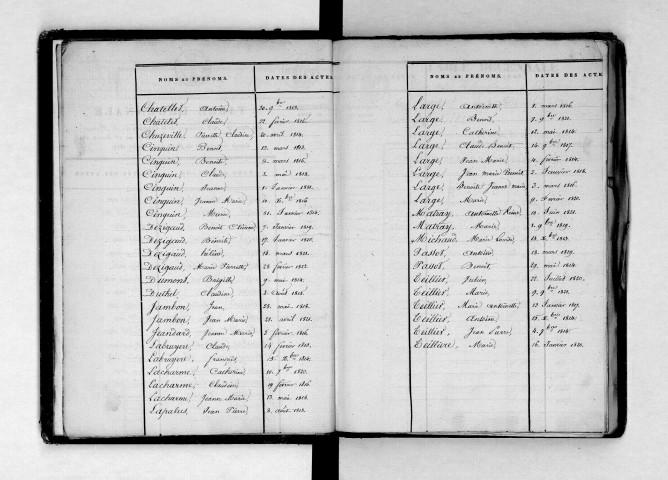 NOMS ET PRÉNOMS. DATES DES ACTES.
Chatellet, Antoine 20. 9bre 1813.
Chatelet, Claude 22 février 1816.
Chuzeville, Pierrette Claudine 20. avril 1814.
Cinquin, Benoit 12. mars 1813.
Cinquin, Benoite 2. mars 1816.
Cinquin, Claude 2. mai 1818.
Cinquin, Jeanne 1. Janvier 1821.
Cinquin, Jeanne Marie 10. Xbre 1816.
Cinquin, Marie 31. Janvier 1814.
Dézigaud, Benoit Etienne 7. Janvier 1819.
Dézigaud, Benoite 17. Janvier 1820.
Dézigaud, Julien 18. mars 1821.
Dézigaud, Marie Pierrette 23 février 1812.
Dumont, Brigitte 9. mai 1814.
Duthel, Claudine 2. Août 1815.
Jambon, Jean 23. mai 1816.
Jambon, Jean Marie 21. avril 1821.
Jeandard, Jeanne Marie 3. février 1816.
Labruyere, Claude 14 février 1818.
Labruyere, francois 15. Xbre 1814.
Lacharme, Catherine 10. 7bre 1820.
Lacharme, Claudine 19 février 1816.
Lacharme, Jeanne Marie 13. mai 1818.
Lapalus, Jean Pierre 3. août 1818.
NOMS ET PRÉNOMS. DATES DES ACTES.
Large, Antoinette 1. mars 1816.
Large, Benoit 7. 9bre 1821.
Large, Catherine 12. mai 1814.
Large, Claude Benoit 14. 9bre 1817.
Large, Jean Marie 4. février 1814.
Large, Jean marie Benoit 2. Janvier 1818.
Large, Benoite Jeanne marie 3. mars 1816.
Large, Marie 9. Fevrier 1820.
Matray, Antoinette 10. Juin 1821.
Matray, Marie 1. 9bre 1819.
Michaud, Marie 13. Xbre 1813.
Passot, Antoine 13. mars 1819.
Passot, Benoit 29. mai 1814.
Teillier, Julien 22. Juillet 1820.
Teillier, Marie 9. 9bre 1821.
Teillier, Marie Antoinette 12 Janvier 1817.
Teillier, Antoine 15. Xbre 1814.
Teillier, Jean Pierre 4. 7bre 1814.
Teilliere, Marie 16. Janvier 1820.